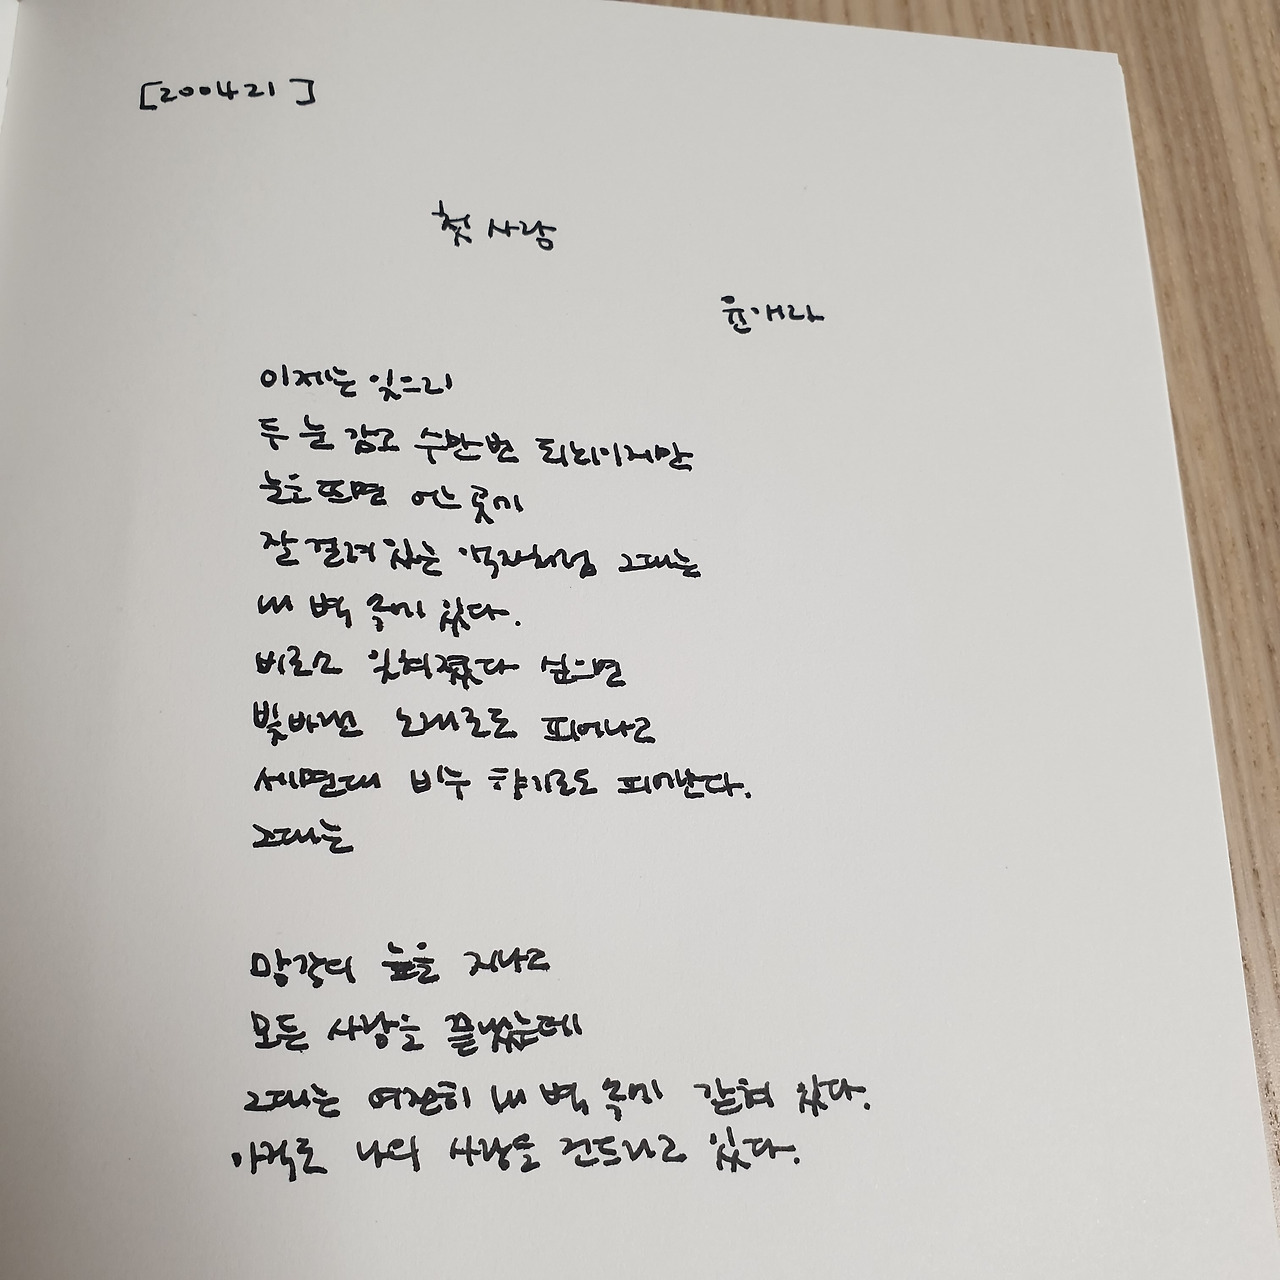 [200421]
첫사랑
윤애라
이제는 잊으리
두 눈 감고 수만번 되뇌이지만
눈을 뜨면 어느 곳에
잘 걸려있는 액자처럼 그대는
내 벽 속에 있다.
비로소 잊혀졌다 싶으면
빛바랜 노래로도 피어나고
세면대 비누 향기로도 피어난다.
그대는
망각의 늪을 지나고
모든 사랑을 끝냈는데
그대는 여전히 내 벽 속에 갇혀 있다.
아직도 나의 사랑을 건드리고 있다.